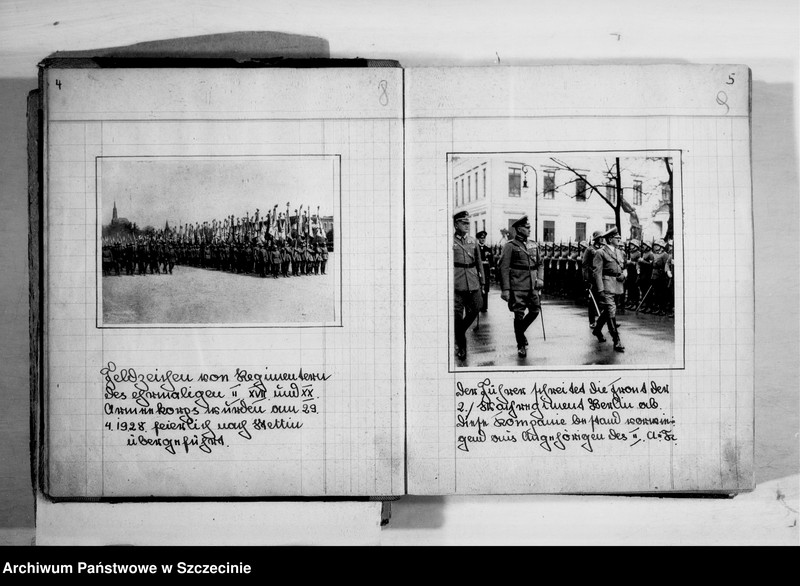 4
8
Feldzeichen von Regimentern
des ehrmaligen II. XVII. und XX.
Armeekorps wurden am 29.
4.1928 feierlich nach Stettin
übergeführt.
5
9
Der Führer schreitet die Front der
2./ Wachregiment Berlin ab.
Diese Kompanie bestand vorwie-
gend aus Angehörigen des II. A.K.
Archiwum Państwowe w Szczecinie